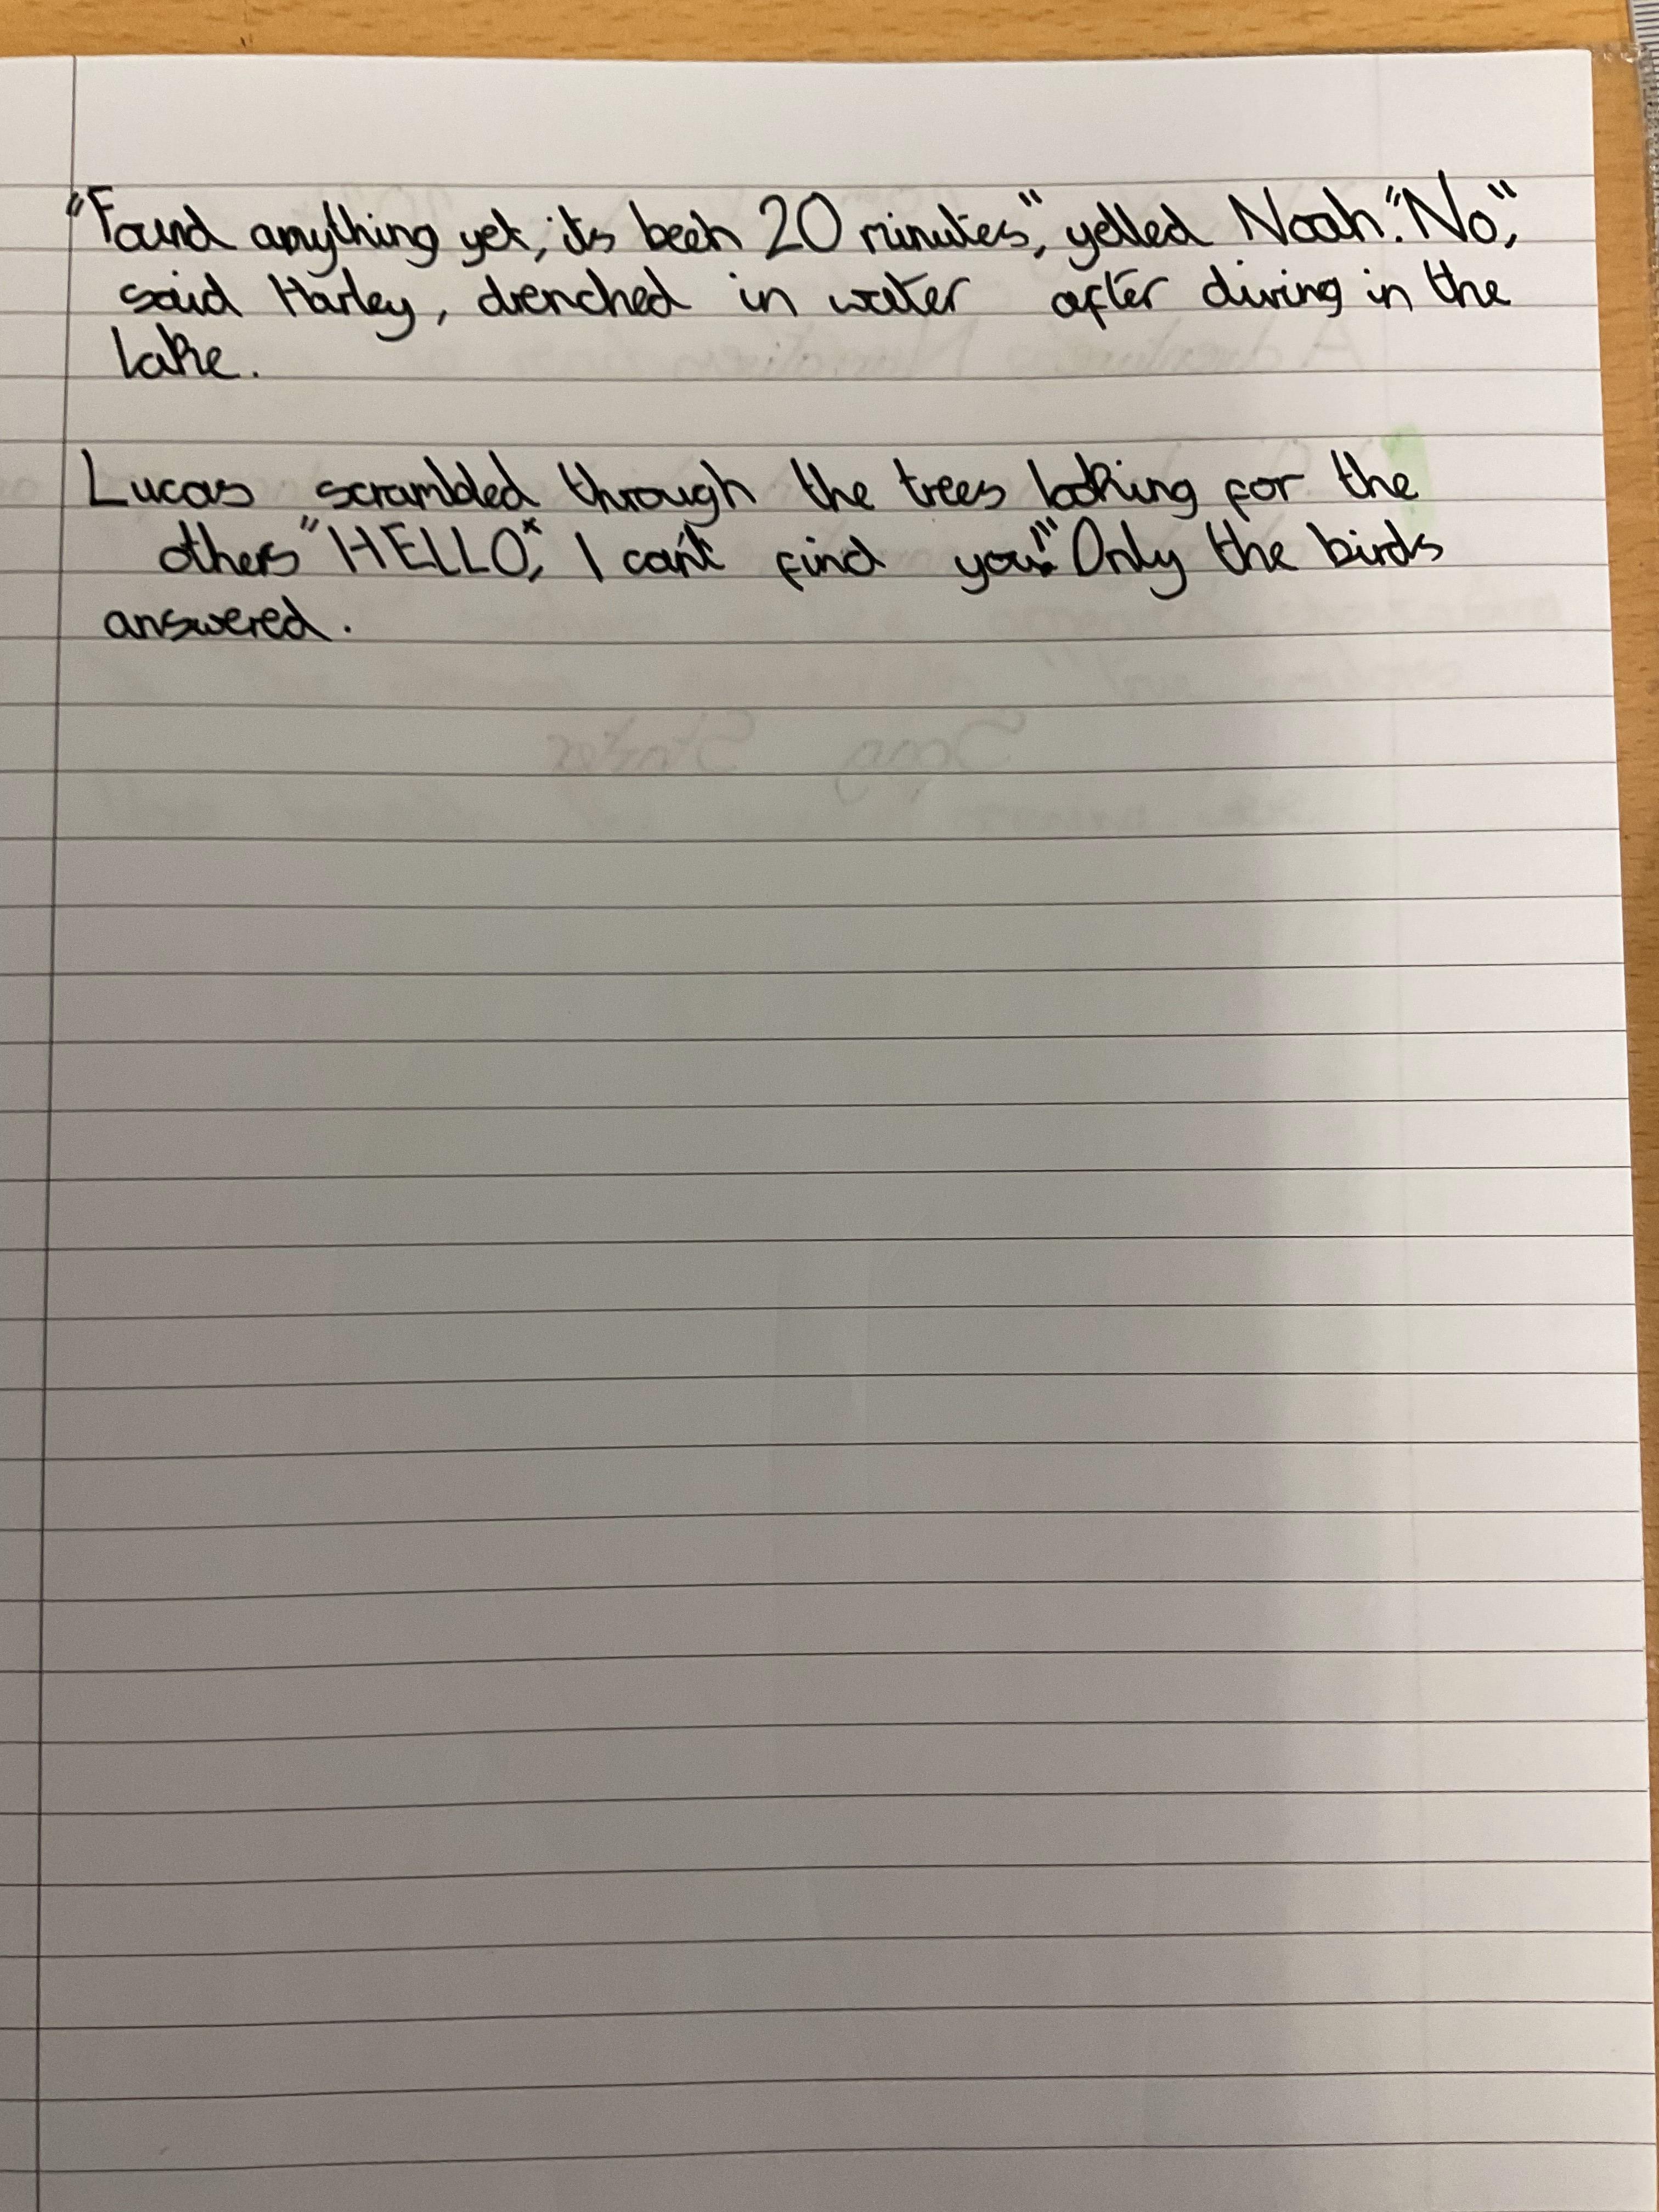 "Found anything yet, its been 20 minutes", yelled Noah. "No",
said Harley, drenched in water after diving in the
lake.
Lucas scrambled through the trees looking for the
others "HELLO", I can't find you!" Only the birds
answered.